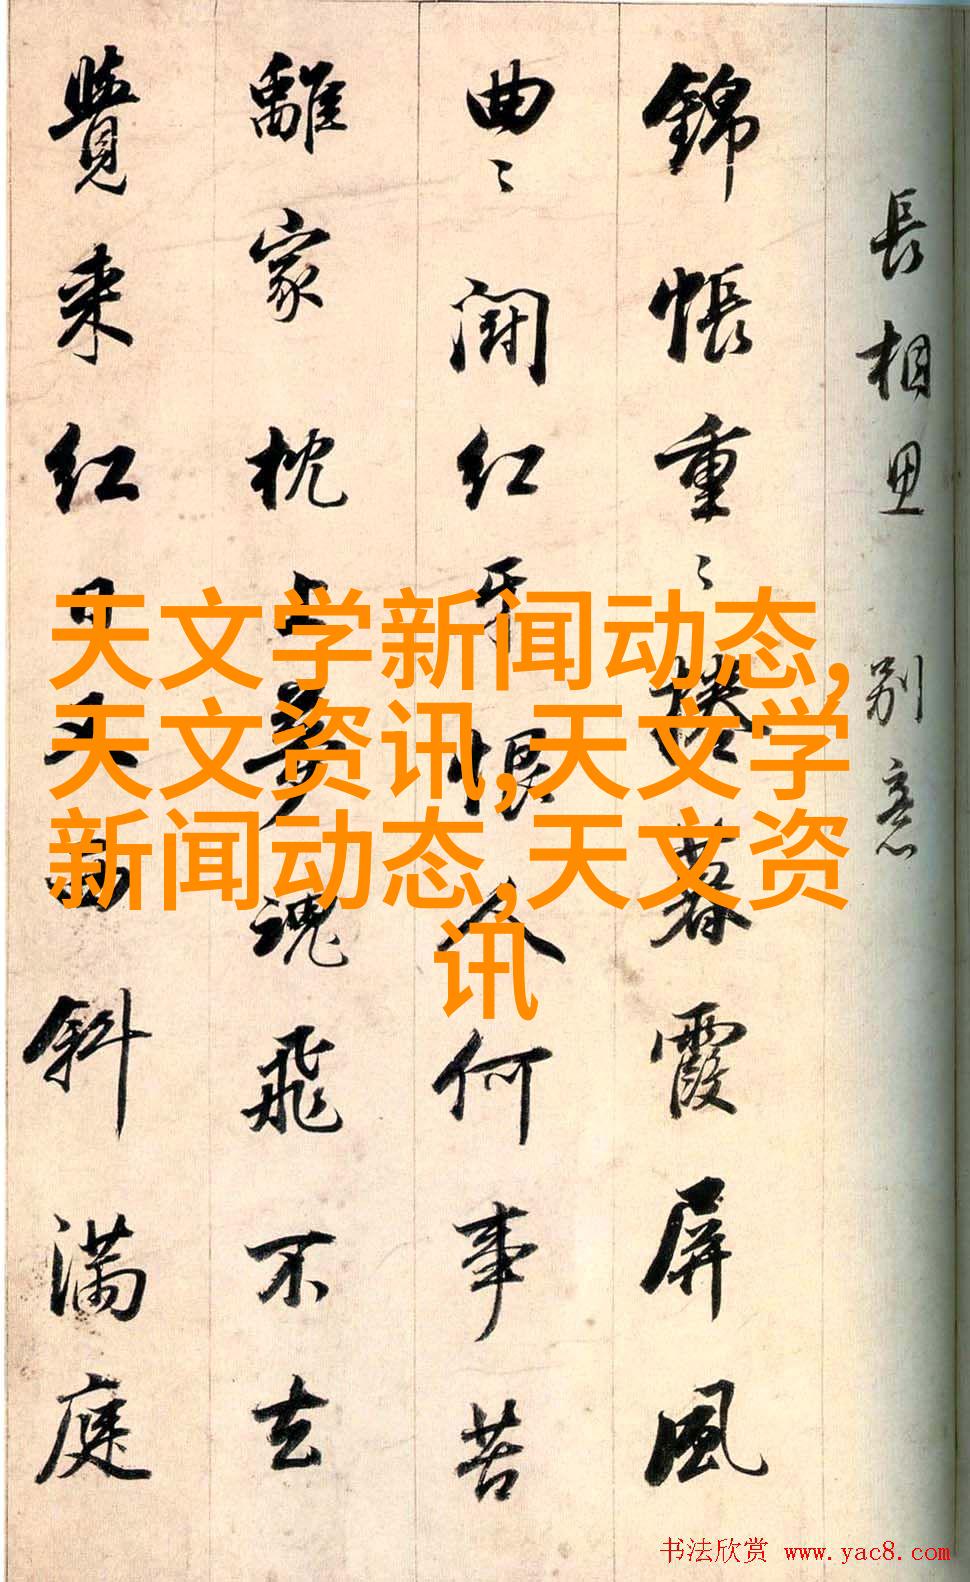 長相思 別意
錦帳重〻捲暮霞屏風
曲〻鬪紅牙恨人何事苦
離家枕上夢魂飛不去
覺來紅日又西斜滿庭
天文学新闻动态,
天文资讯,天文学
新闻动态,天文资
讯
书法欣赏 www.yac8.com